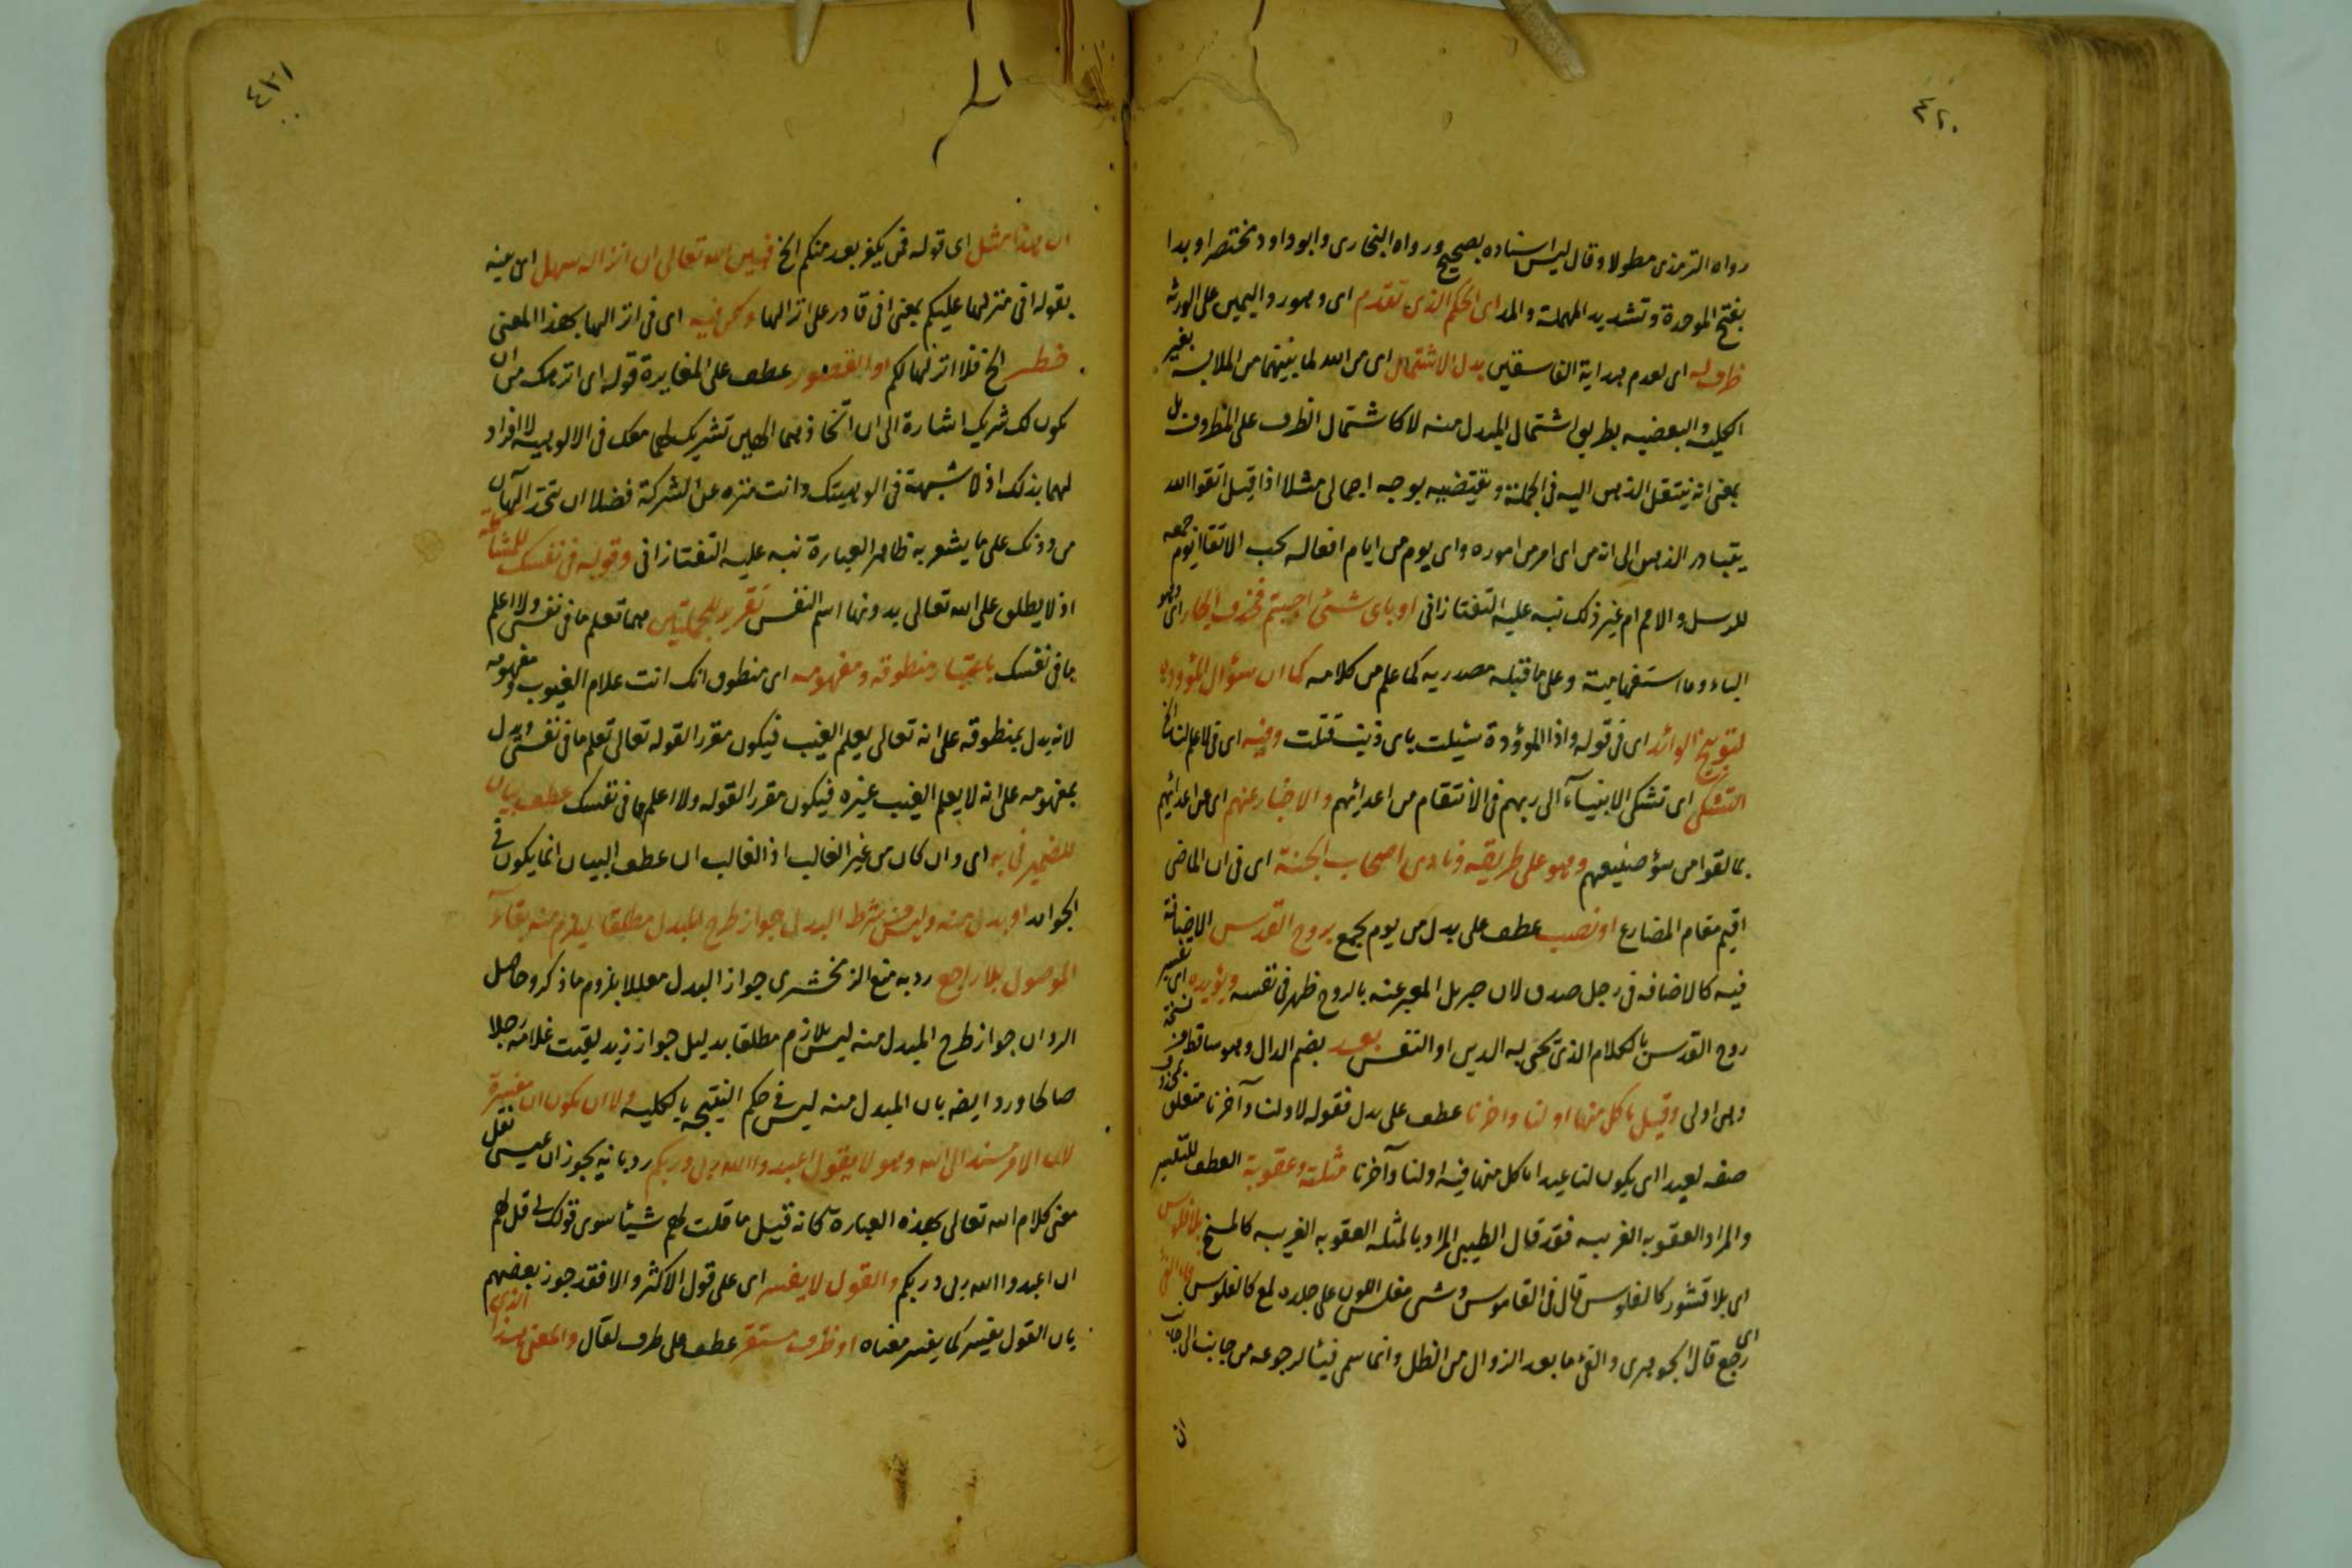 ٤٢٠
رواه الترمذى مطولا وقال ليس اسناده بصحيح ورواه البخارى وابو داود مختصرا وبدا
بفتح الموحدة وتشديد المهملة والمد اى الحكم الذى تقدم اى وهو رد اليمين على الورثة
ظرف له اى لعدم هداية الفاسقين بدل الاشتمال اى من الله لما بينهما من الملابسة بغير
الكلية والبعضيه بطريق اشتمال المبدل منه لا كاشتمال الظرف على المظروف بل
بمعنى انه ينتقل الذهن اليه فى الجملة ويقتضيه بوجه اجمالى مثلا اذا قيل اتقوا الله
يتبادر الذهن الى انه من اى امر من اموره واى يوم من ايام افعاله يجب الاتقاء يوم جمعه
للرسل والامم ام غير ذلك نبه عليه التفتازانى او باى شئ اجبتم فحذف الجار اى وهو
الباء وما استفهامية وعلى ما قبله مصدريه كما علم من كلامه كما ان سؤال الموؤدة
لتوبيخ الوائد اى فى قوله واذا الموؤدة سئلت باى ذنب قتلت وفيه اى فى لا علم لنا الخ
التشكى اى تشكى الانبياء الى ربهم فى الانتقام من اعدائهم والاخبار عنهم اى عن اعدائهم
بما لقوا من سؤ صنيعهم وهو على طريقة ونادى اصحاب الجنة اى فى ان الماضى
اقيم مقام المضارع او نصب عطف على بدل من يوم يجمع بروح القدس الاضافة
فيه كالاضافه فى رجل صدق لان جبريل المعبر عنه بالروح ظهر فى نفسه ويؤيده اى تفسير
روح القدس بالكلام الذى يحيى به الدين او النفس بعد بضم الدال وهو ساقط من نسخة
وهى اولى وقيل ياكل منها اولنا واخرنا عطف على بدل فقوله لاولنا وآخرنا متعلق بمحذوف
صفه لعيدا اى يكون لنا عيدا ياكل منها فيه اولنا وآخرنا مثلة وعقوبة العطف للتفسير
والمراد العقوبه الغريبه فقد قال الطيبى المراد بالمثله العقوبه الغريبه كالمسخ بلا فلوس
اى بلا قشور كالفلوس قال فى القاموس وشى مفلس اللون على جلده لمع كالفلوس
اى رجع قال الجوهرى والفئ ما بعد الزوال من الظل وانما سمى فيئا لرجوعه من جانب الى جانب
ان
٤٢١
ان هذا مثل اى قوله فمن يكفر بعد منكم الخ فبين الله تعالى ان انزاله سهل
بقوله انى منزلها عليكم بمعنى انى قادر على انزالها ولكن فيه اى فى انزالها بهذا المعنى
خطر الخ فلا انزلها لكم او القصور عطف على المغايرة قوله اى انزهك من ان
يكون لك شريك اشارة الى ان اتخاذهما الهين تشريك لهما معك فى الالوهيه لا افراد
لهما بذلك اذ لا شبهة فى الوهيتك وانت منزه عن الشركة فضلا ان يتخذ الهان
من دونك على ما يشعر به ظاهر العبارة نبه عليه التفتازانى وقوله فى نفسك للمشاكلة
اذ لا يطلق على الله تعالى بدونها اسم النفس تقرير للجملتين هما تعلم ما فى نفسى ولا اعلم
ما فى نفسك باعتبار منطوقه ومفهومه اى منطوق انك انت علام الغيوب ومفهومه
لانه يدل بمنطوقه على انه تعالى يعلم الغيب فيكون مقررا لقوله تعالى تعلم ما فى نفسى ويدل
بمفهومه على انه لا يعلم الغيب غيره فيكون مقررا لقوله ولا اعلم ما فى نفسك عطف بيان
للضمير فى به اى وان كان من غير الغالب اذ الغالب ان عطف البيان انما يكون فى
الجوامد او بدل منه وليس من شرط البدل جواز طرح المبدل مطلقا ليلزم منه بقاء
الموصول بلا راجع رد به منع الزمخشرى جواز البدل معللا بلزوم ما ذكر وحاصل
الرد ان جواز طرح المبدل منه ليس بلازم مطلقا بدليل جواز زيد لقيت غلامه رجلا
صالحا ورد ايضه بان المبدل منه ليس فى حكم بالكليه ولا ان يكون ان مفسرة
لان الامر مسند الى الله وهو لا يقول اعبدوا الله ربى وربكم رد بانه يجوز ان عيسى نقل
معنى كلام الله تعالى بهذه العبارة كانه قيل ما قلت لهم شيئا سوى قولك لى قل لهم
ان اعبدوا الله ربى وربكم والقول لا يفسر اى على قول الاكثر والا فقد جوز بعضهم
بان القول يفسر كما يفسر معناه او ظرف مستقر عطف على ظرف لقال والمعنى هذا الذى